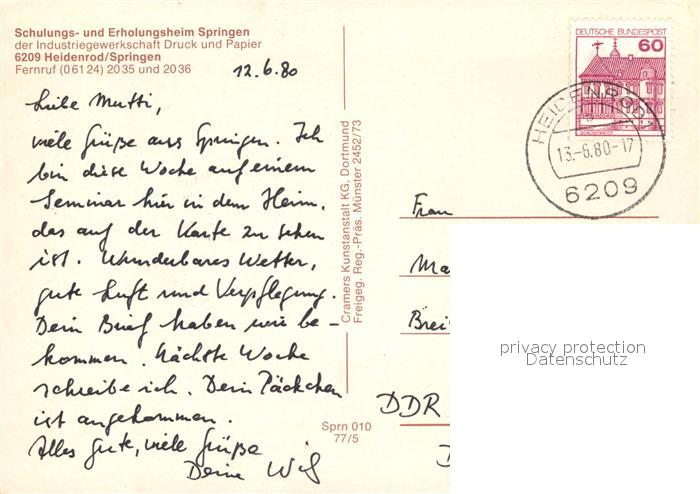 Schulungs- und Erholungsheim Springen
der Industriegewerkschaft Druck und Papier
6209 Heidenrod/Springen
Fernruf (06124) 2035 und 2036
12.6.80
Liebe Mutti,
viele Grüße aus Springen. Ich
bin diese Woche auf einem
Seminar hier in dem Heim,
das auf der Karte zu sehen
ist. Wunderbares Wetter,
gute Luft und Verpflegung.
Dein Brief haben wir be-
kommen. Nächste Woche
schreibe ich. Dein Päckchen
ist angekommen.
Alles Gute, viele Grüße
Deine
Cramers Kunstanstalt KG, Dortmund
Freigeg. Reg.-Präs. Münster 2452/73
Sprn 010
77/5
DEUTSCHE BUNDESPOST
60
HEIDENROD 1
13.-6.80-17
6209
Frau
Ma
Brei
DDR
privacy protection
Datenschutz